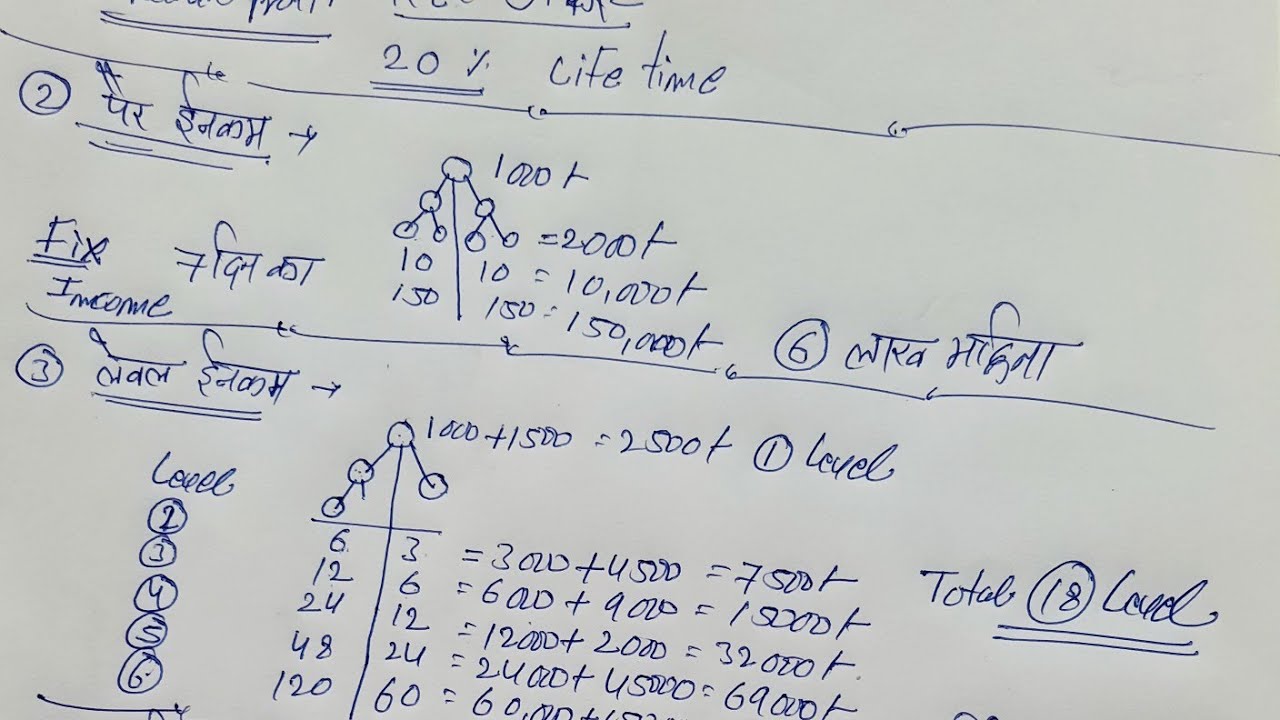 20 % Life time
② पैर ईनकम →
1000/-
= 2000/-
Fix 7 दिन का
Income
10 | 10 = 10,000/-
150 | 150 = 150,000/-
⑥ लाख महिना
③ लेवल ईनकम →
1000+1500 = 2500/- ① Level
Level
② 6 | 3 = 3000+4500 = 7500/-
③ 12 | 6 = 6000+9000 = 15000/-
Total ⑱ Level
④ 24 | 12 = 12000+2000 = 32000/-
⑤ 48 | 24 = 24000+45000 = 69000/-
⑥ 120 | 60 = 60,000+